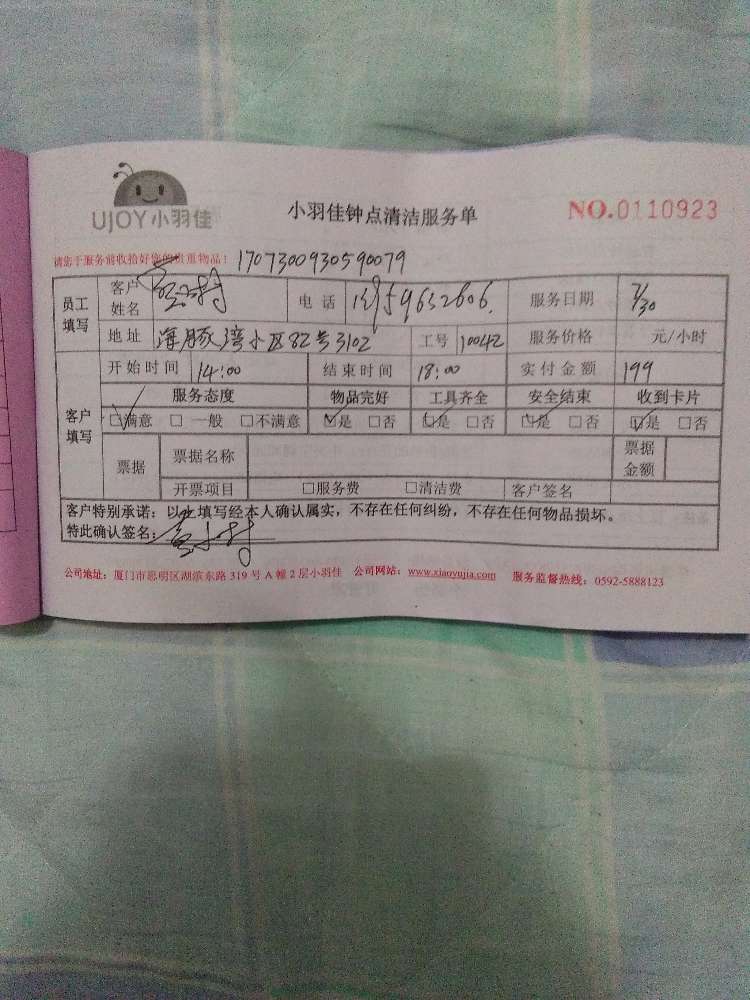 UJOY小羽佳
小羽佳钟点清洁服务单
NO.0110923
请您于服务前收拾好您的贵重物品! 1707300930590079
员工填写 客户姓名 电话 服务日期 7/30
地址 海豚湾小区82号3102 工号 10042 服务价格 元/小时
客户填写 开始时间 14:00 结束时间 18:00 实付金额 199
服务态度 物品完好 工具齐全 安全结束 收到卡片
☑满意 □一般 □不满意 ☑是 □否 ☑是 □否 ☑是 □否 ☑是 □否
票据 票据名称 票据金额
开票项目 □服务费 □清洁费 客户签名
客户特别承诺:以此填写经本人确认属实,不存在任何纠纷,不存在任何物品损坏。
特此确认签名:
公司地址:厦门市思明区湖滨东路 319 号 A 幢 2 层小羽佳 公司网站:www.xiaoyujia.com 服务监督热线:0592-5888123